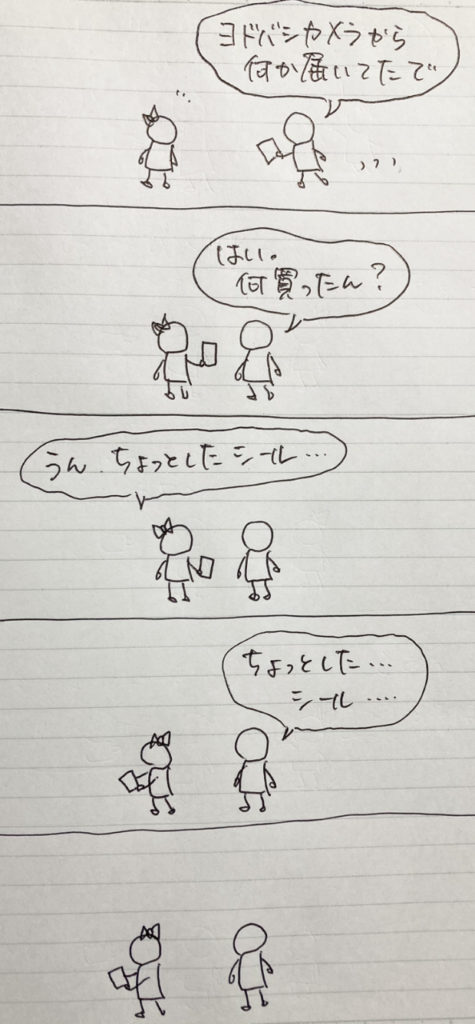 ヨドバシカメラから
何か届いてたで
はい。
何買ったん?
うん、ちょっとしたシール…
ちょっとした…
シール….